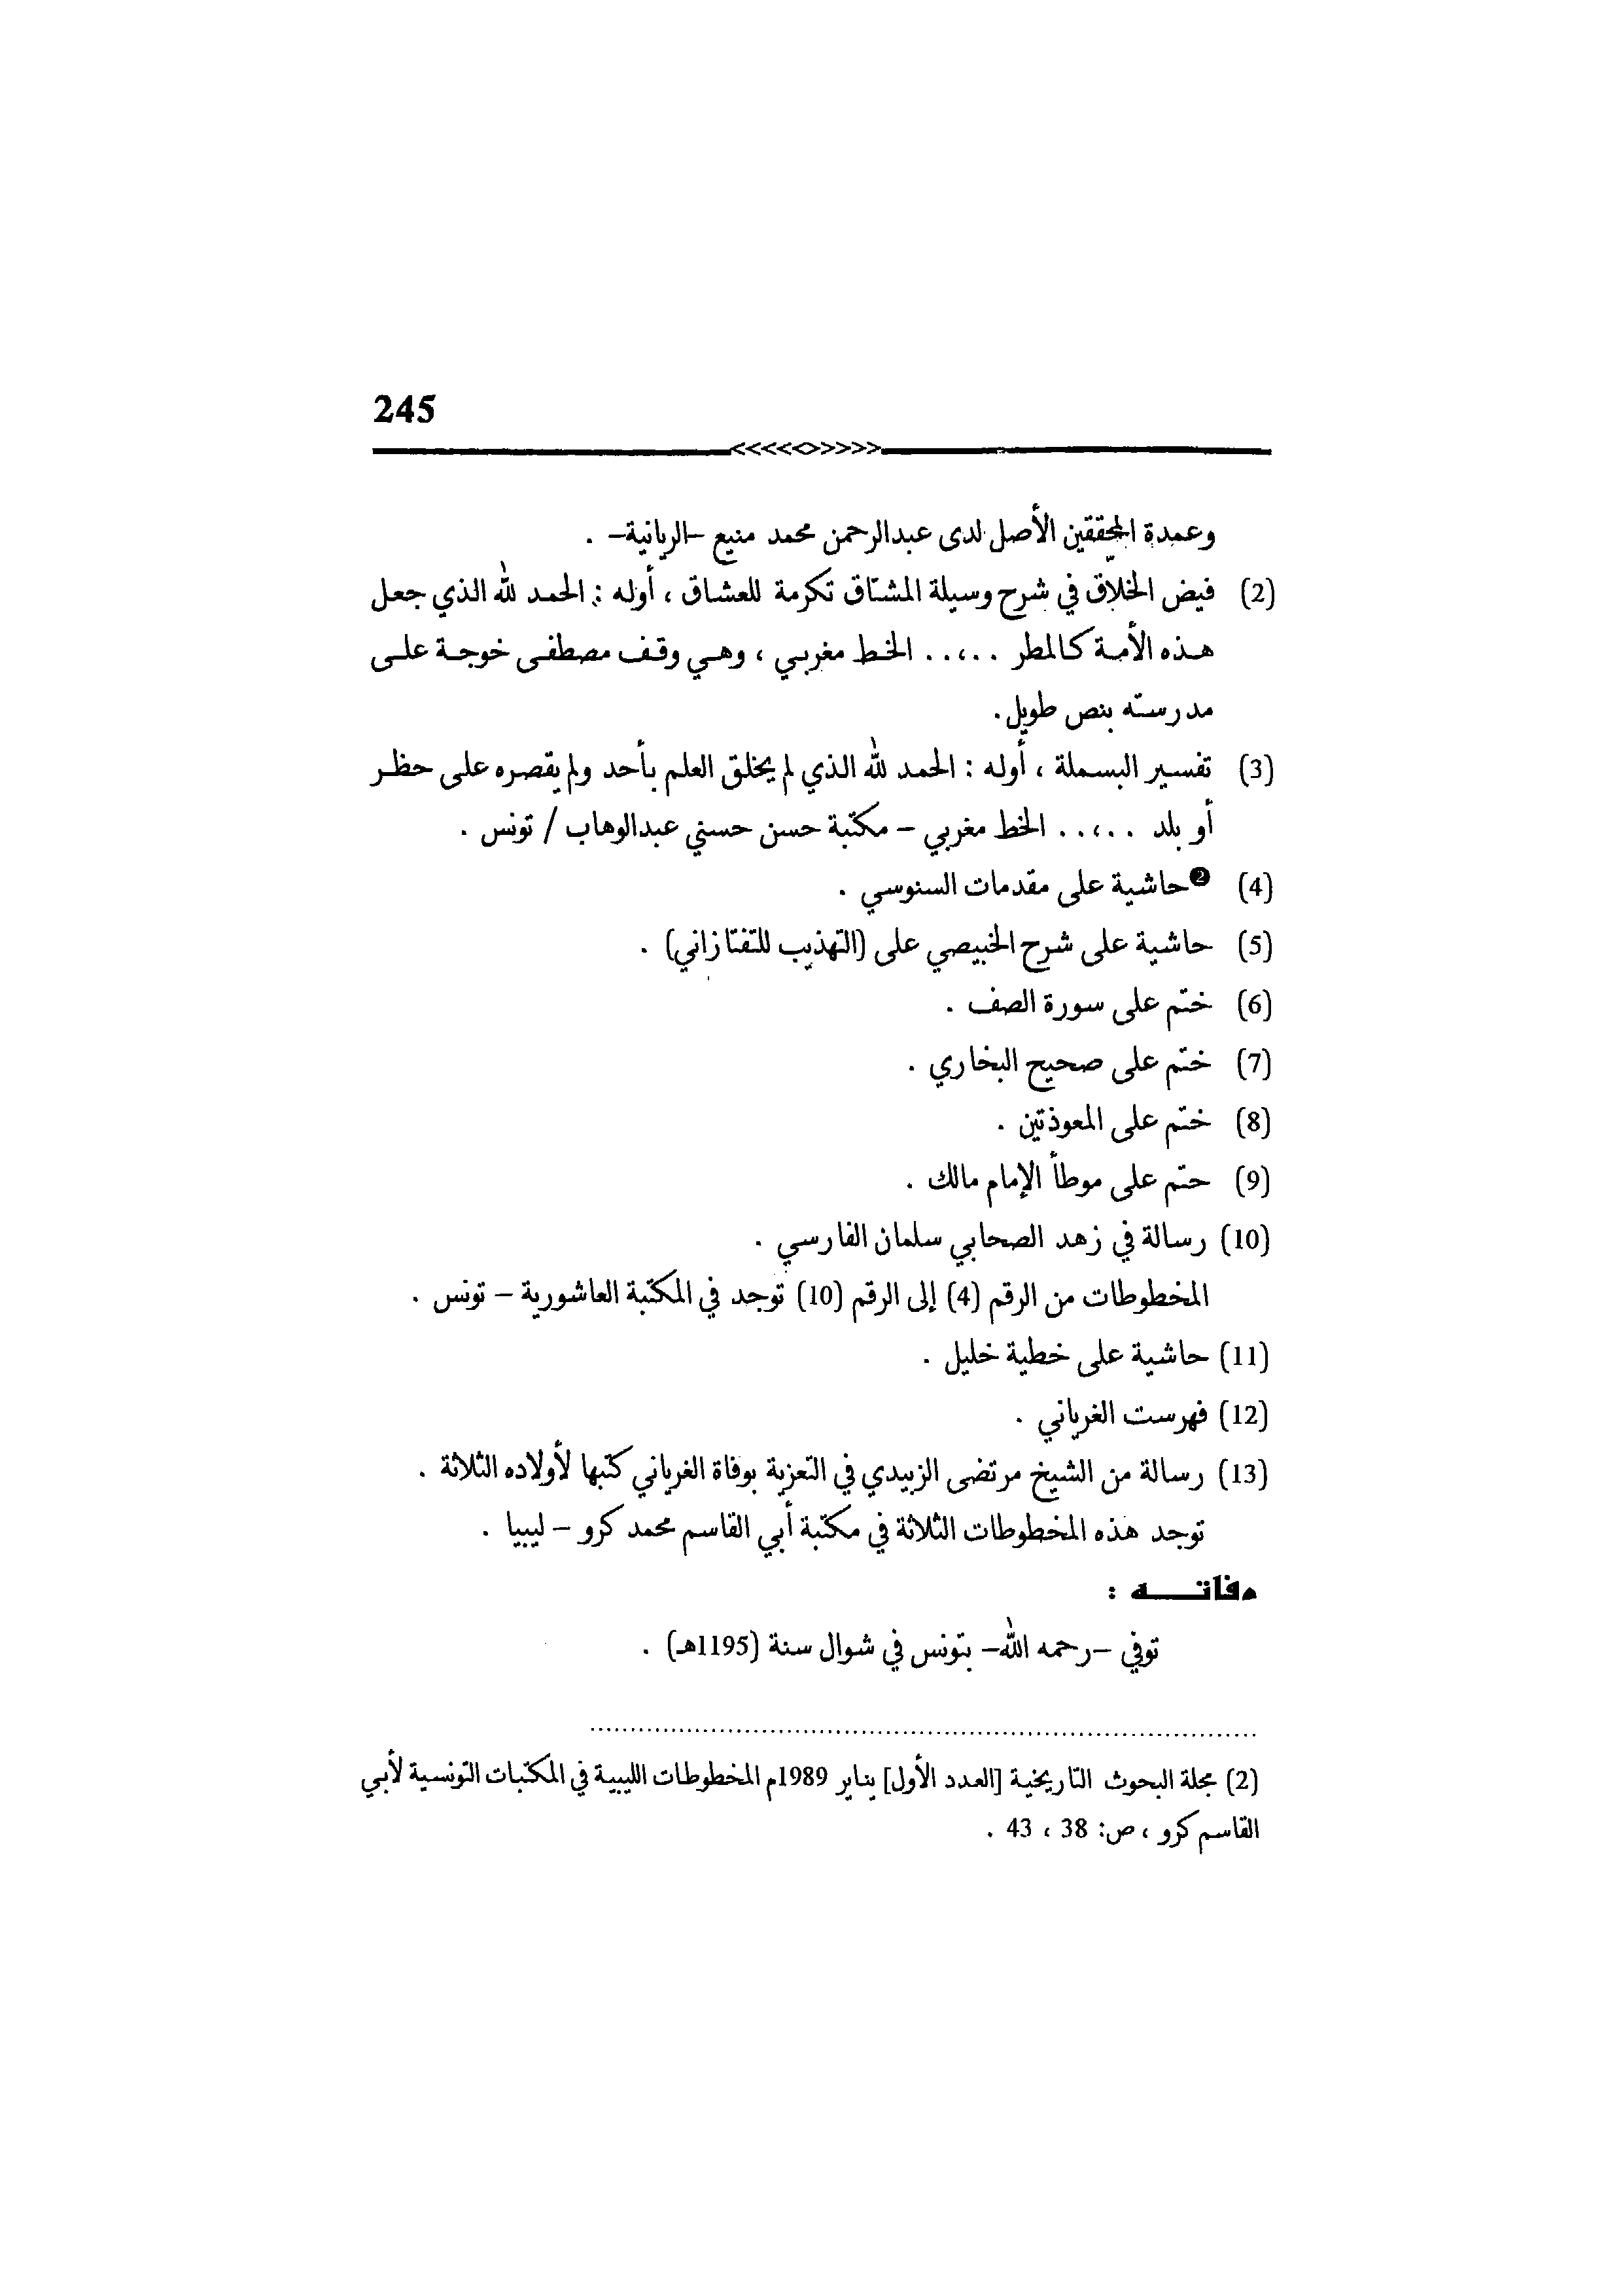 245
وعمدة المحققين الأصل لدى عبدالرحمن محمد منيع -الريانية- .
(2) فيض الخلاق في شرح وسيلة المشتاق تكرمة للعشاق ، أوله : الحمد لله الذي جعل
هذه الأمة كالمطر ..،.. الخط مغربي ، وهي وقف مصطفى خوجة على
مدرسته بنص طويل.
(3) تفسير البسملة ، أوله : الحمد لله الذي لم يخلق العلم بأحد ولم يقصره على حظر
أو بلد ..،.. الخط مغربي - مكتبة حسن حسني عبدالوهاب / تونس .
(4) ❷حاشية على مقدمات السنوسي .
(5) حاشية على شرح الخبيصي على (التهذيب للتفتازاني) .
(6) ختم على سورة الصف .
(7) ختم على صحيح البخاري .
(8) ختم على المعوذتين .
(9) حتم على موطأ الإمام مالك .
(10) رسالة في زهد الصحابي سلمان الفارسي .
المخطوطات من الرقم (4) إلى الرقم (10) توجد في المكتبة العاشورية - تونس .
(11) حاشية على خطية خليل .
(12) فهرست الغرياني .
(13) رسالة من الشيخ مرتضى الزبيدي في التعزية بوفاة الغرياني كتبها لأولاده الثلاثة .
توجد هذه المخطوطات الثلاثة في مكتبة أبي القاسم محمد كرو - ليبيا .
وفاتـــه :
توفي -رحمه الله- بتونس في شوال سنة (1195هـ) .
(2) مجلة البحوث التاريخية [العدد الأول] يناير 1989م المخطوطات الليبية في المكتبات التونسية لأبي
القاسم كرو ، ص: 38 ، 43 .